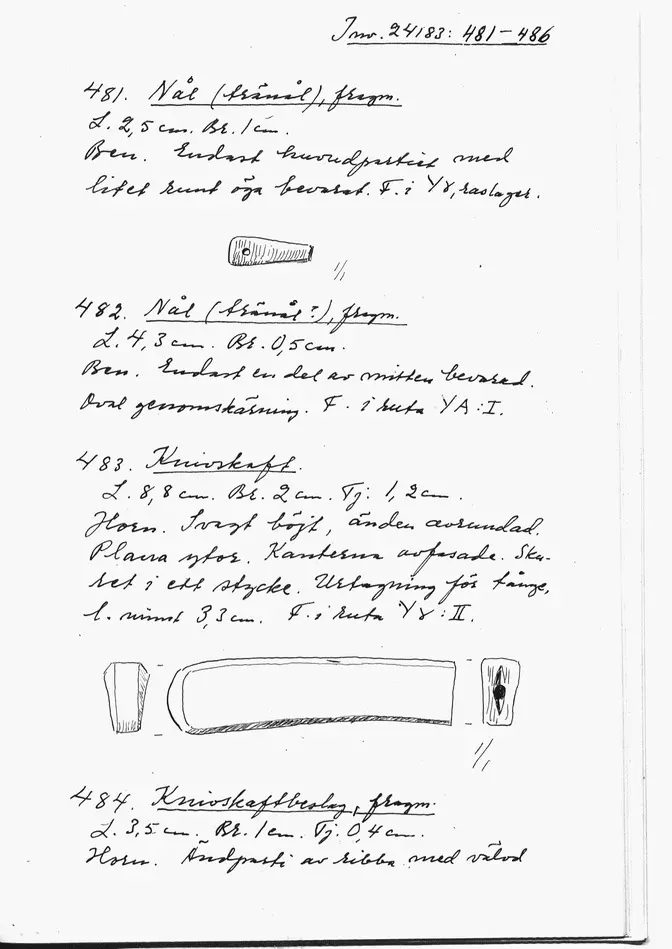 Inv. 24183: 481-486
481. Nål (tränål), fragm.
L. 2,5 cm. Br. 1 cm.
Ben. Endast huvudpartiet med
litet runt öga bevarat. F. i YÄ, raslager.
1/1
482. Nål (tränål?), fragm.
L. 4,3 cm. Br. 0,5 cm.
Ben. Endast en del av mitten bevarad.
Oval genomskärning. F. i ruta YA:I.
483. Knivskaft.
L. 8,8 cm. Br. 2 cm. Tj. 1,2 cm.
Horn. Svagt böjt, änden avrundad.
Plana ytor. Kanterna avfasade. Ska-
ret i ett stycke. Urtagning för tånge,
l. minst 3,3 cm. F. i ruta :II.
1/1
484. Knivskaftbeslag, fragm.
L. 3,5 cm. Br. 1 cm. Tj. 0,4 cm.
Horn. Ändparti av ribba med välvd